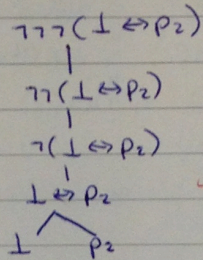 ¬¬¬(⊥ ↔ p₂)
¬¬(⊥ ↔ p₂)
¬(⊥ ↔ p₂)
⊥ ↔ p₂
⊥ p₂